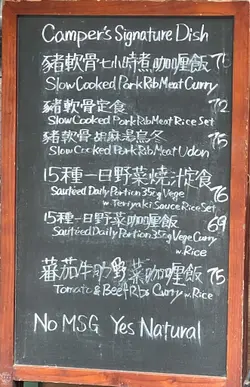 Camper's Signature Dish
豬軟骨七小時煮咖喱飯 71
Slow Cooked Pork Rib Meat Curry
豬軟骨定食 72
Slow Cooked Pork Rib Meat Rice Set
豬軟骨胡麻湯烏冬 75
Slow Cooked Pork Rib Meat Udon
15種一日野菜燒汁定食 76
Sautéed Daily Portion 350g Vege
w. Teriyaki Sauce Rice Set
15種一日野菜咖喱飯 69
Sautéed Daily Portion 350g Vege Curry
w. Rice
蕃茄牛肋野菜咖喱飯 75
Tomato & Beef Rib Curry w. Rice
No MSG Yes Natural